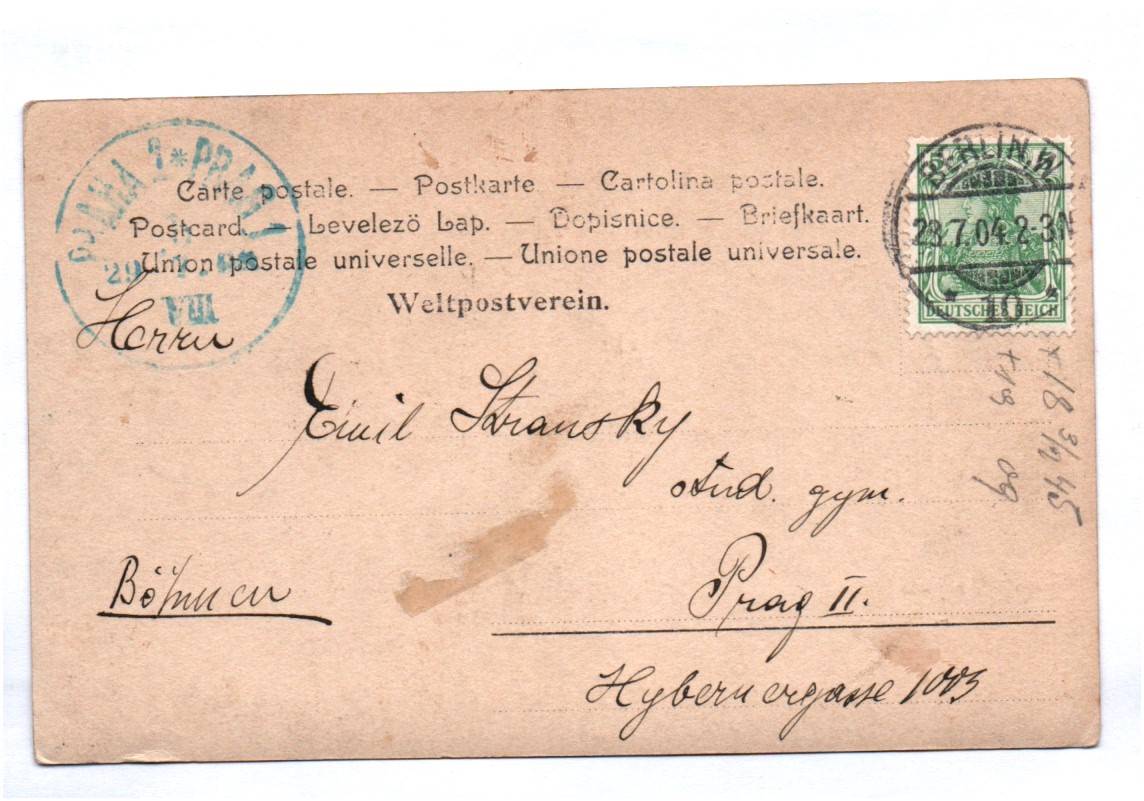 PRAHA 1 * PRAG 1
29
VIII
Carte postale. — Postkarte — Cartolina postale.
Postcard. — Levelezö Lap. — Dopisnice. — Briefkaart.
Union postale universelle. — Unione postale universale.
Weltpostverein.
BERLIN.W.
28.7.04.2-3N
* 10 *
DEUTSCHES REICH
Herrn
Emil Stransky
stud. gym.
Böhmen
Prag II.
Hybernergasse 1003